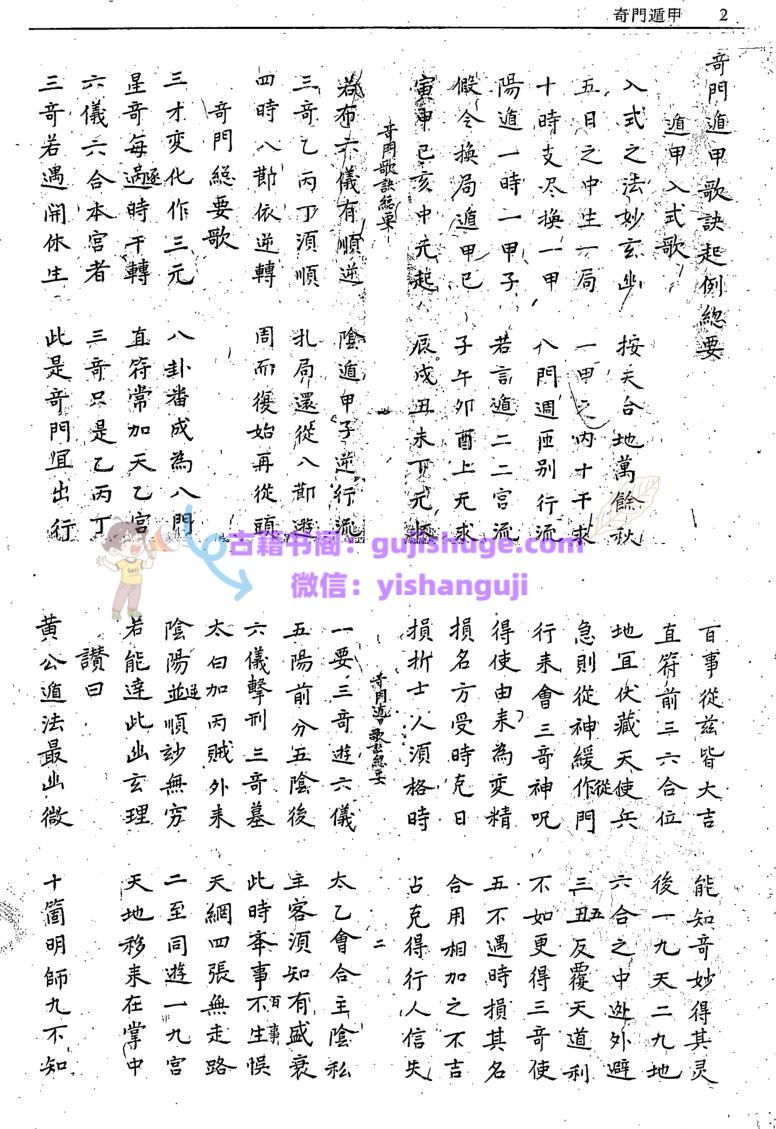 奇門遁甲 2
奇門遁甲歌訣起例總要
遁甲入式歌
入式之法妙玄幽 按天合地萬餘秋
五日之中生一局 一甲之內十干求
十時支尽換一甲 八門週匝別行流
陽遁一時一甲子 若言遁二二宮流
假令換局遁甲己 子午卯酉上元求
寅申巳亥中元起 辰戌丑未下元
奇門歌訣總要 一
若布六儀有順逆 陰遁甲子逆行流
三奇乙丙丁須順 扎局還從八節遊
四時八節依逆轉 周而復始再從頭
奇門總要歌
三才变化作三元 八卦潘成為八門
星奇每過逐時干轉 直符常加天乙宮
六儀六合本宮者 三奇只是乙丙丁
三奇若遇開休生 此是奇門宜出行
百事從茲皆大吉 能知奇妙得其灵
直符前三六合位 後一九天二九地
地宜伏藏天使兵 六合之中逃外避
急則從神緩作從門 三五丑反覆天道利
行来會三奇神呪 不如更得三奇使
得使由来為变精 五不遇時損其名
損名方受時克日 合用相加之不吉
損折士人須格時 占克得行人信失
奇門遁甲歌訣總要 二
一要三奇遊六儀 太乙會合主陰私
五陽前分五陰後 主客須知有盛衰
六儀擊刑三奇墓 此時宰事百事不生悮
太白加丙賊外来 天網四張無走路
陰陽並逆順妙無穷 二至同遊一九宮
若能達此幽玄理 天地移来在掌中
讚曰
黄公遁法最幽微 十箇明師九不知
古籍书阁：gujishuge.com
微信：yishanguji